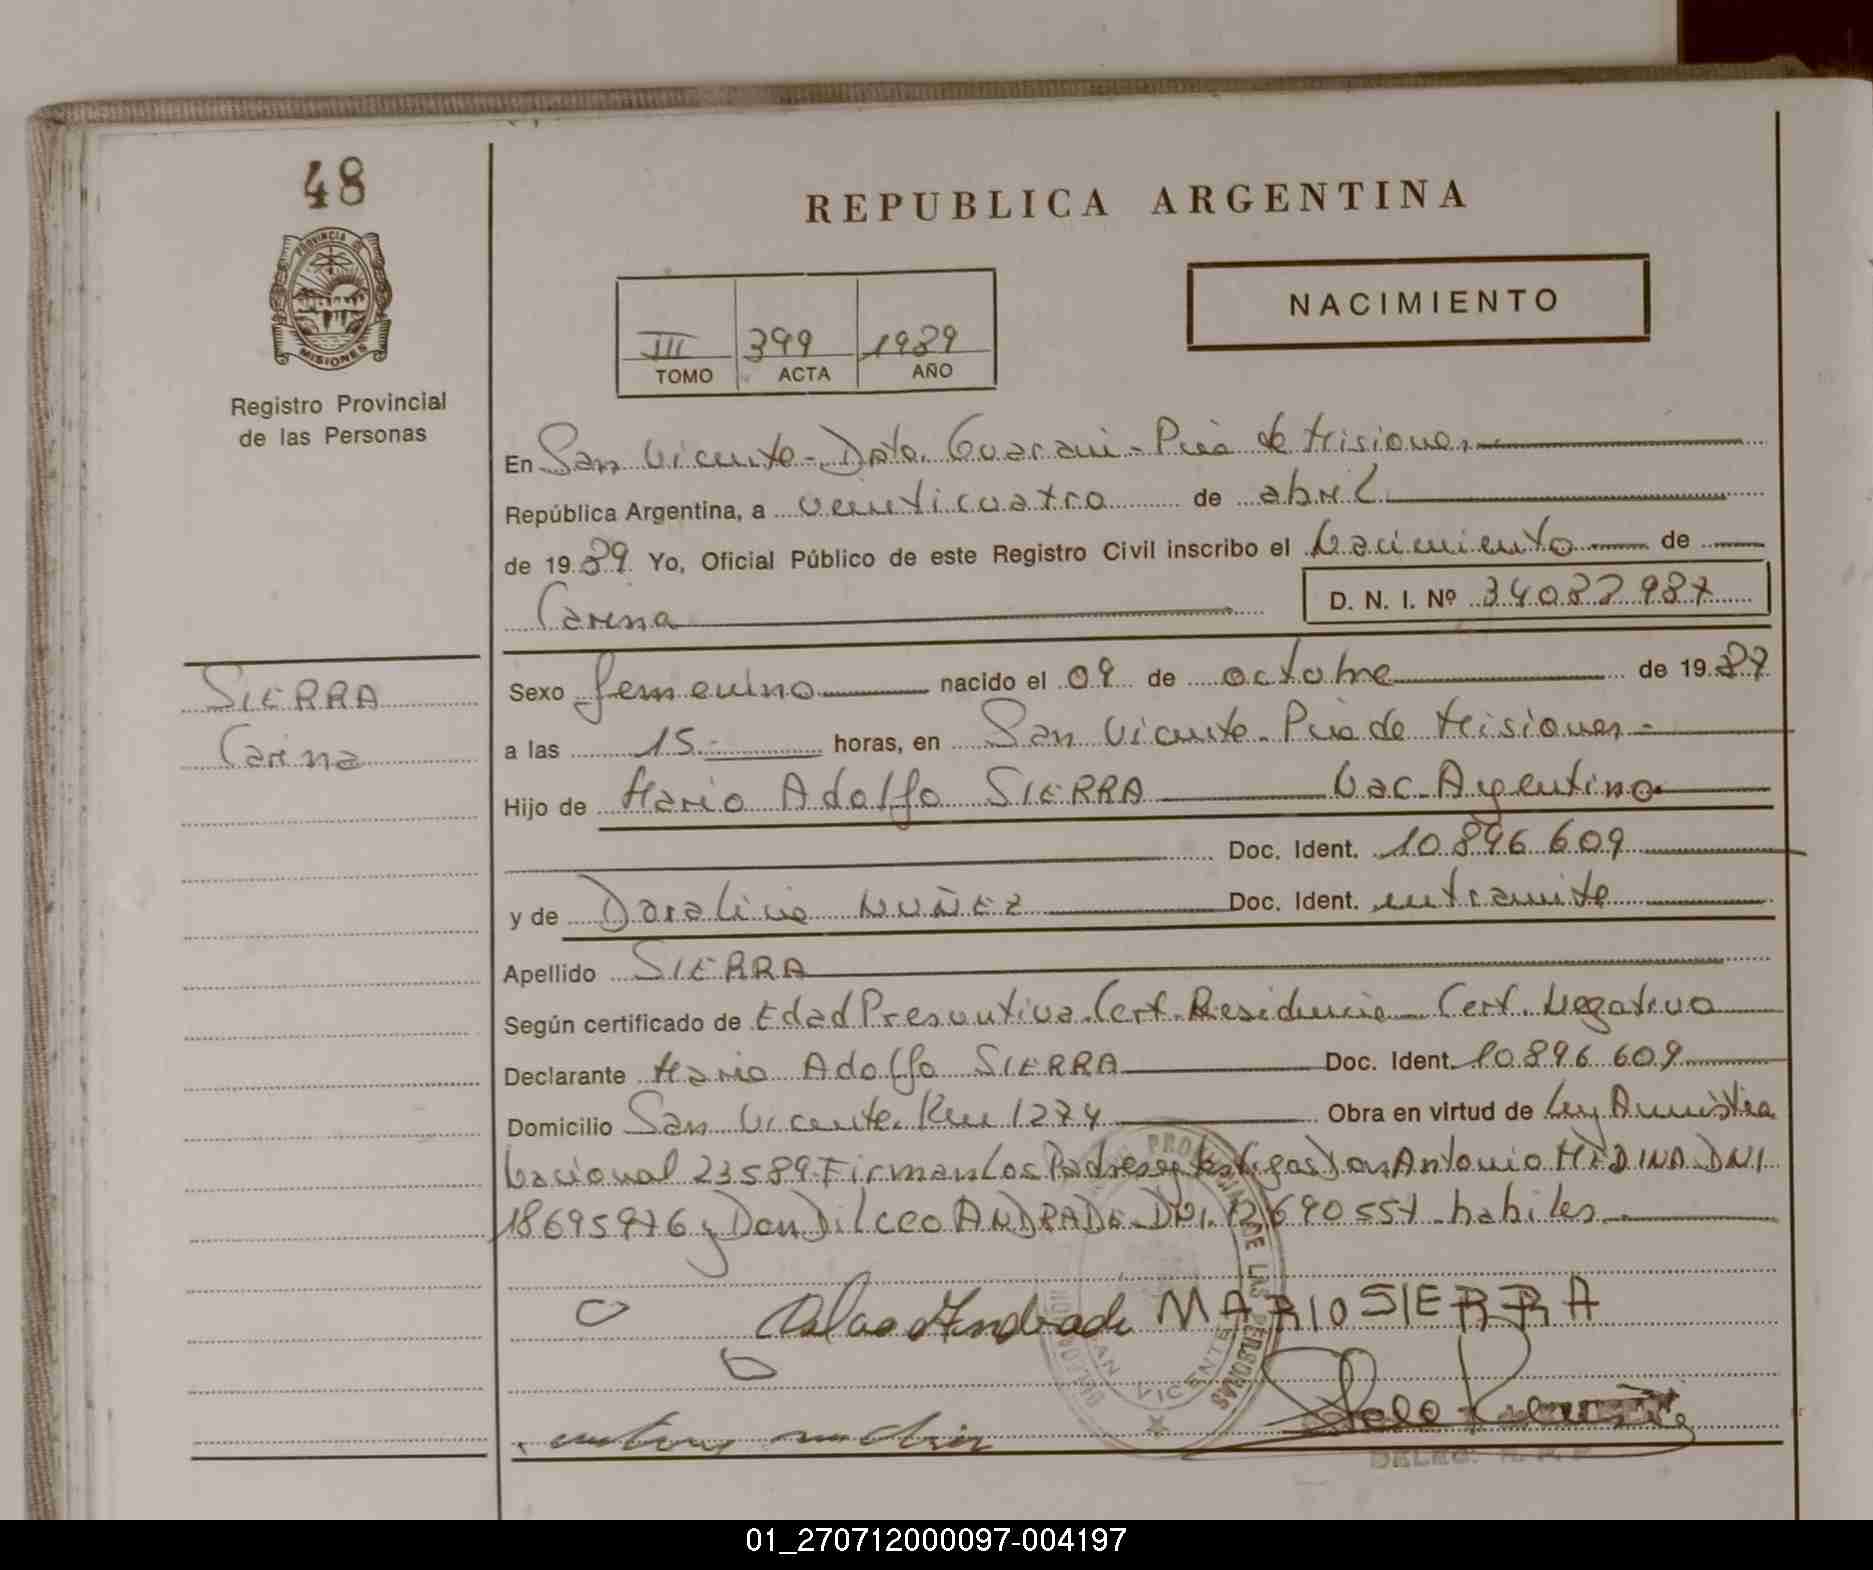 48
PROVINCIA DE
MISIONES
Registro Provincial
de las Personas
REPUBLICA ARGENTINA
NACIMIENTO
III 399 1989
TOMO ACTA AÑO
En San Vicente - Dpto. Guarani - Pcia de Misiones
República Argentina, a veinticuatro de abril
de 1989 Yo, Oficial Público de este Registro Civil inscribo el Nacimiento de
Carina D. N. I. Nº
SIERRA
Carina
Sexo femenino nacido el 09 de octobre de 1987
a las 15 - horas, en San Vicente - Pcia de Misiones -
Hijo de Mario Adolfo SIERRA Nac. Argentino
Doc. Ident. 10.896.609
y de Doralicia NUÑEZ Doc. Ident. en tramite
Apellido SIERRA
Según certificado de Edad Presuntiva. Cert. Residencia Cert. Negativo
Declarante Mario Adolfo SIERRA Doc. Ident. 10.896.609
Domicilio San Vicente. Km 1274 Obra en virtud de Ley Amnistia
Nacional 23589. Firman Los Padres y testigos Don Antonio MEDINA DNI
18695976 y Don Dilceo ANDRADE DNI. habiles
Andrade MARIO SIERRA
REGISTRO PROVINCIAL DE LAS PERSONAS
SAN VICENTE
01_270712000097-004197